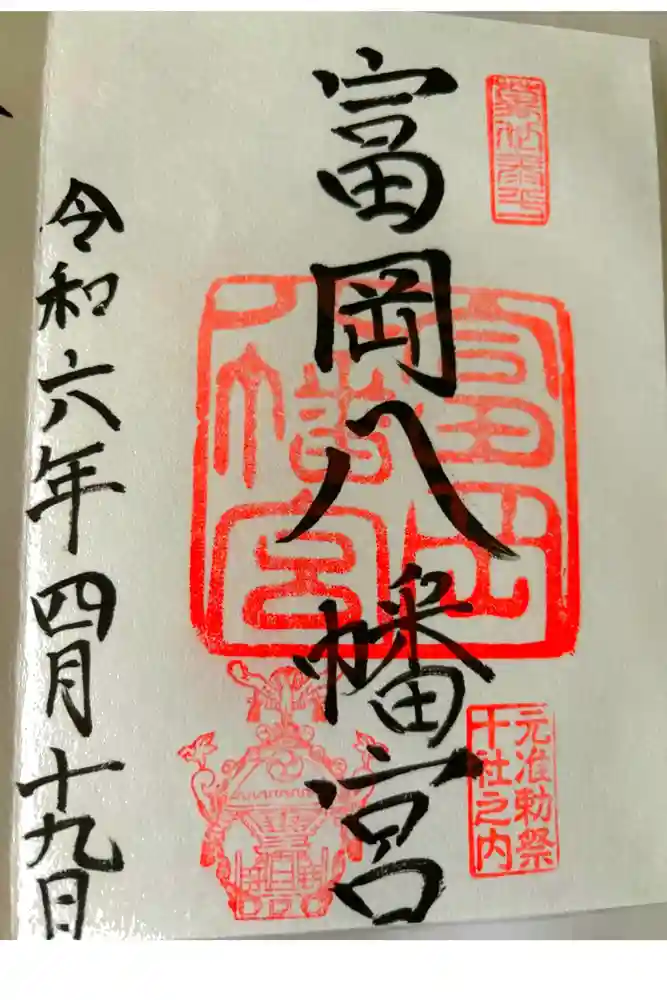 富岡八幡宮
富岡
八幡宮
元准勅祭
十社之内
令和六年四月十九日